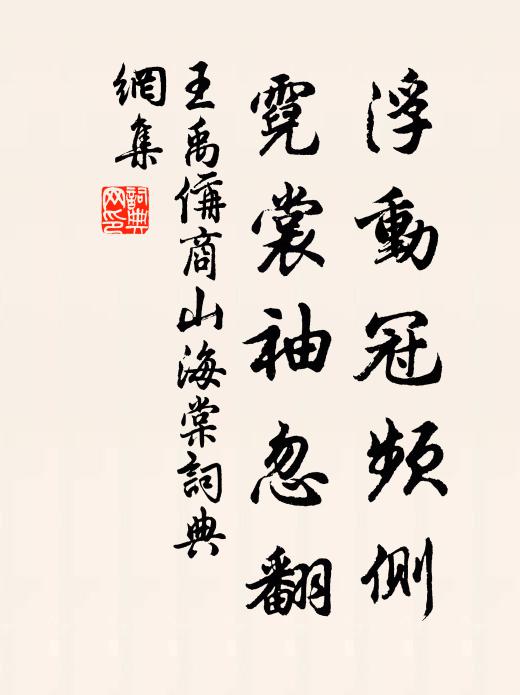 浮動冠頻側
霓裳袖忽翻
王禹偁商山海棠詞典
網集
詞典網印